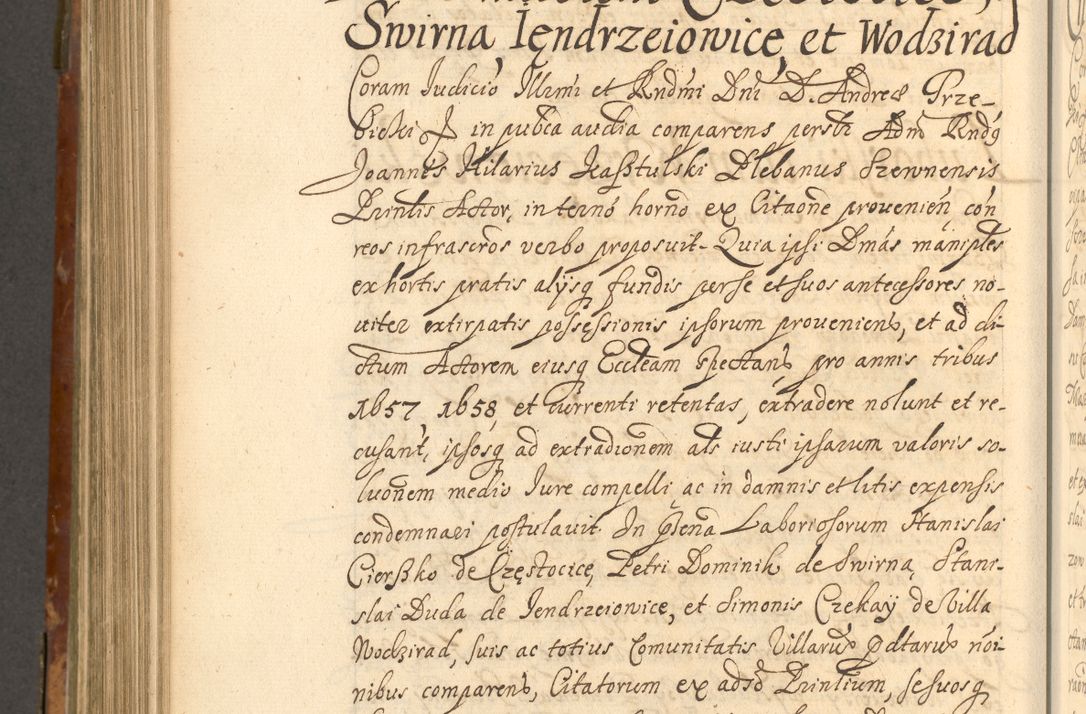 Swirna Iędrzeiowice, et Wodzirad
Coram Iudicio Illrmi et Rndmi Dni D. Andreæ Trze-
bicki in pubca audia comparens persłr Adm Rndg
Joannes Hilarius Kaßtulski Plebanus Szewnensis
Prinlis Actor, in terno horno ex Citaone prouenien, con
reos infrascros verbo proposuit. Quia ipsi Dmas maniples
ex hortis pratis alysq fundis per se et suos antecessores no-
uiter extirpatis possessionis ipsorum prouenienŧ, et ad di-
ctum Actorem eiusq Eccleam spectanŧ pro annis tribus
1657 1658, et currenti retentas, extradere nolunt et re-
cusanŧ, ipsosq ad extradionem als iusti ipsarum valoris so-
luonem medio Iure compelli, ac in damnis et litis expensis
condemnari postulavit. In pñena Laboriosorum Stanislai
Cierßko de Częstocice, Petri Dominik de Swirna, Stani-
slai Duda de Iendrzeiowice, et Simonis Czekay de Villa
Wodzirad, suis ac totius Comunitatis Villarum pdtarum noi-
nibus comparenŧ, Citatorum ex adso Prinlium, se suosq